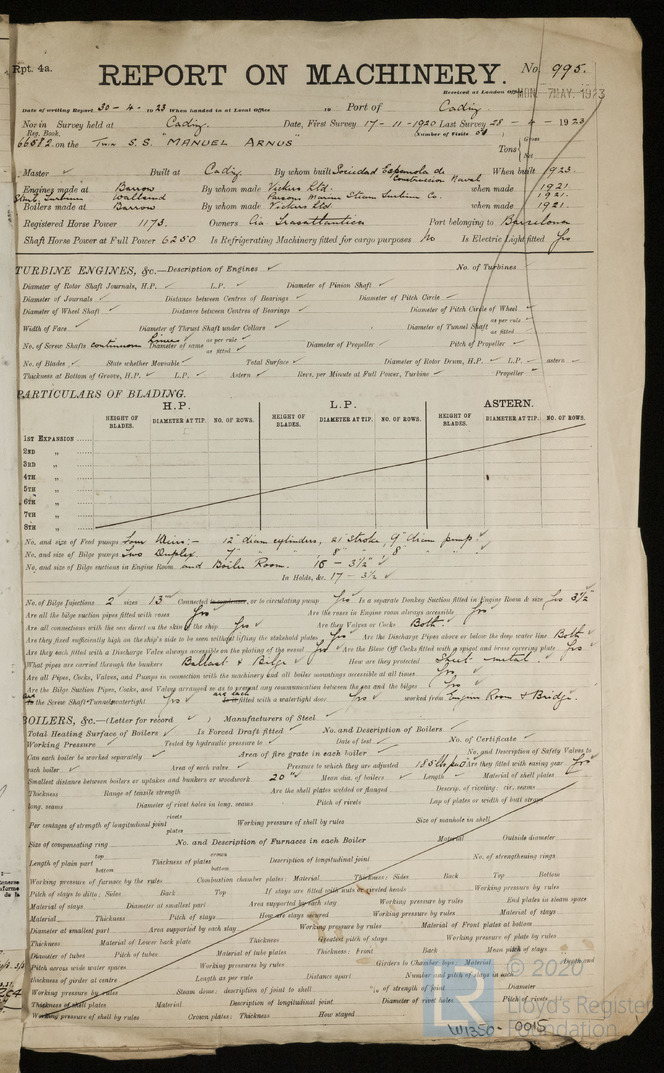 Rpt. 4a.
REPORT ON MACHINERY.
No. 995.
Received at London Office
MON. 7 MAY. 1923
Date of writing Report 30 - 4 - 1923 When handed in at Local Office 19 Port of Cadiz
No. in Survey held at Cadiz. Date, First Survey 17 - 11 - 1920 Last Survey 28 - 4 - 1923
Reg. Book. (Number of Visits 51
66582 on the Twin S.S. "MANUEL ARNUS" Tons Gross Net
Master Built at Cadiz By whom built Sociedad Espanola de Construccion Naval When built 1923.
Engines made at Barrow By whom made Vickers Ltd. when made 1921.
Wallsend Parsons Marine Steam Turbine Co. 1921.
Boilers made at Barrow By whom made Vickers Ltd. when made 1921.
Registered Horse Power 1173. Owners Cia. Trasatlantica Port belonging to Barcelona
Shaft Horse Power at Full Power 6250 Is Refrigerating Machinery fitted for cargo purposes No Is Electric Light fitted Yes
TURBINE ENGINES, &c.—Description of Engines No. of Turbines
Diameter of Rotor Shaft Journals, H.P. L.P. Diameter of Pinion Shaft
Diameter of Journals Distance between Centres of Bearings Diameter of Pitch Circle
Diameter of Wheel Shaft Distance between Centres of Bearings Diameter of Pitch Circle of Wheel
Width of Face Diameter of Thrust Shaft under Collars Diameter of Tunnel Shaft as per rule as fitted
No. of Screw Shafts continuous liners Diameter of same as per rule as fitted Diameter of Propeller Pitch of Propeller
No. of Blades State whether Moveable Total Surface Diameter of Rotor Drum, H.P. L.P. astern
Thickness at Bottom of Groove, H.P. L.P. Astern Revs. per Minute at Full Power, Turbine Propeller
PARTICULARS OF BLADING.
H.P. L.P. ASTERN.
HEIGHT OF BLADES. DIAMETER AT TIP. NO. OF ROWS. HEIGHT OF BLADES. DIAMETER AT TIP. NO. OF ROWS. HEIGHT OF BLADES. DIAMETER AT TIP. NO. OF ROWS.
1ST EXPANSION
2ND "
3RD "
4TH "
5TH "
6TH "
7TH "
8TH "
No. and size of Feed pumps Four Weirs:— 12" diam cylinders, 21 stroke, 9" diam pump.
No. and size of Bilge pumps Two Duplex. 7" " " 8" " 8" " "
No. and size of Bilge suctions in Engine Room and Boiler Room. 16 - 3½"
In Holds, &c. 17 - 3½
No. of Bilge Injections 2 sizes 13" Connected to condenser, or to circulating pump Yes Is a separate Donkey Suction fitted in Engine Room & size Yes 3½
Are all the bilge suction pipes fitted with roses Yes Are the roses in Engine room always accessible Yes
Are all connections with the sea direct on the skin of the ship Yes Are they Valves or Cocks Both.
Are they fixed sufficiently high on the ship's side to be seen without lifting the stokehold plates Yes Are the Discharge Pipes above or below the deep water line Both
Are they each fitted with a Discharge Valve always accessible on the plating of the vessel Yes Are the Blow Off Cocks fitted with a spigot and brass covering plate Yes
What pipes are carried through the bunkers Ballast & Bilge How are they protected Sheet metal.
Are all Pipes, Cocks, Valves, and Pumps in connection with the machinery and all boiler mountings accessible at all times Yes
Are the Bilge Suction Pipes, Cocks, and Valves arranged so as to prevent any communication between the sea and the bilges Yes
are Is the Screw Shaft Tunnel watertight Yes are each Is it fitted with a watertight door Yes worked from Engine Room & Bridge.
BOILERS, &c.—(Letter for record ) Manufacturers of Steel
Total Heating Surface of Boilers Is Forced Draft fitted No. and Description of Boilers
Working Pressure Tested by hydraulic pressure to Date of test No. of Certificate
Can each boiler be worked separately Area of fire grate in each boiler No. and Description of Safety Valves to
each boiler Area of each valve Pressure to which they are adjusted 185 Are they fitted with easing gear Yes
Smallest distance between boilers or uptakes and bunkers or woodwork 20" Mean dia. of boilers Length Material of shell plates
Thickness Range of tensile strength Are the shell plates welded or flanged Descrip. of riveting: cir. seams
long. seams Diameter of rivet holes in long. seams Pitch of rivets Lap of plates or width of butt straps
Per centages of strength of longitudinal joint rivets plates Working pressure of shell by rules Size of manhole in shell
Size of compensating ring No. and Description of Furnaces in each Boiler Material Outside diameter
Length of plain part top bottom Thickness of plates crown bottom Description of longitudinal joint No. of strengthening rings
Working pressure of furnace by the rules Combustion chamber plates: Material Thickness: Sides Back Top Bottom
Pitch of stays to ditto: Sides Back Top If stays are fitted with nuts or riveted heads Working pressure by rules
Material of stays Diameter at smallest part Area supported by each stay Working pressure by rules End plates in steam space
Material Thickness Pitch of stays How are stays secured Working pressure by rules Material of stays
Diameter at smallest part Area supported by each stay Working pressure by rules Material of Front plates at bottom
Thickness Material of Lower back plate Thickness Greatest pitch of stays Working pressure of plate by rules
Diameter of tubes Pitch of tubes Material of tube plates Thickness: Front Back Mean pitch of stays
Pitch across wide water spaces Working pressures by rules Girders to Chamber tops: Material Depth and
thickness of girder at centre Length as per rule Distance apart Number and pitch of stays in each
Working pressure by rules Steam dome: description of joint to shell % of strength of joint Diameter
Thickness of shell plates Material Description of longitudinal joint Diameter of rivet holes Pitch of rivets
Working pressure of shell by rules Crown plates: Thickness How stayed
© 2020
Lloyd's Register
Foundation
W1350-0015